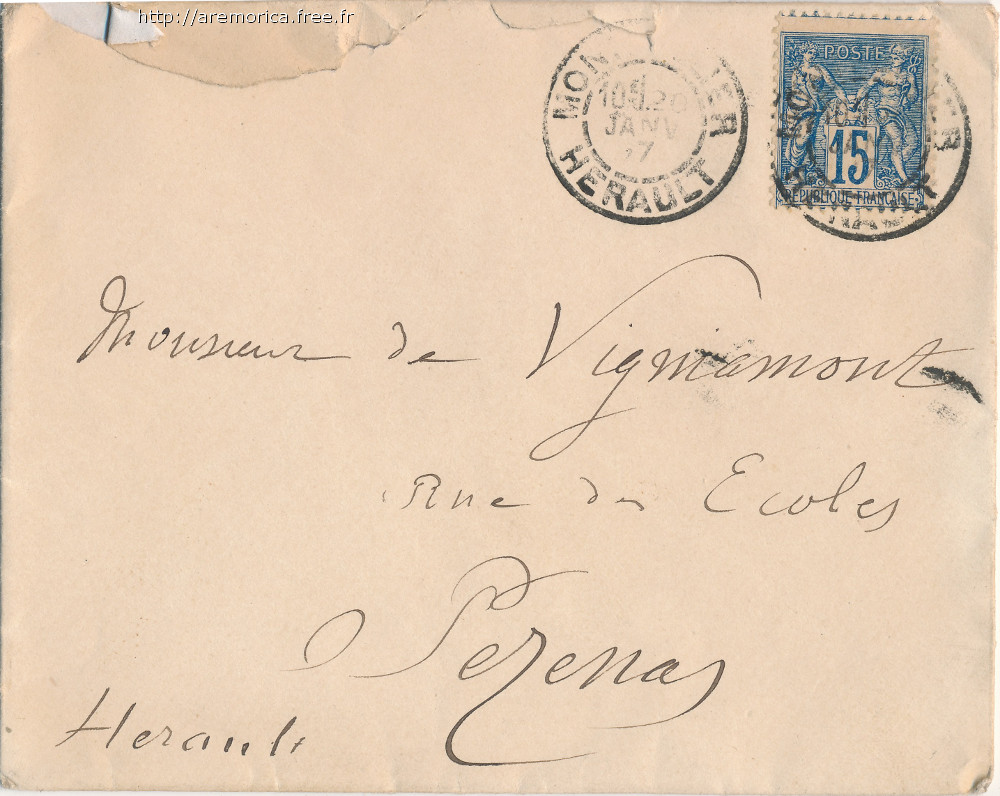 http://aremorica.free.fr
MON ER
10 S 20
JANV
7
HERAULT
POSTE
15
REPUBLIQUE FRANÇAISE
ER
JAN
Monsieur de Vigniamont
Rue des Ecoles
Pezenas
Herault